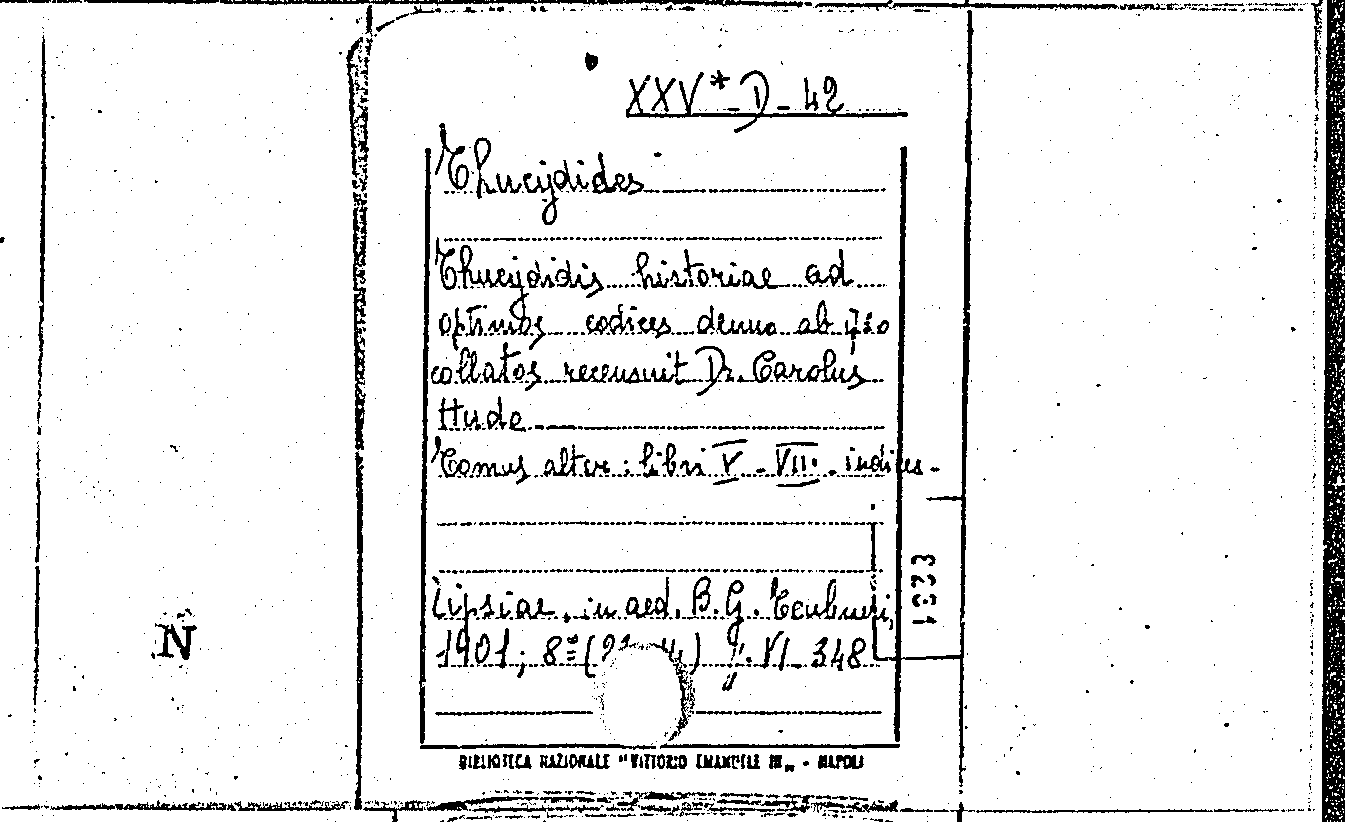 XXV*-D-42
Thucydides
Thucydidis historiae ad
optimos codices denuo ab ipso
collatos recensuit Dr. Carolus
Hude
Tomus alter: libri V-VIII. indices.
Lipsiae, in aed. B. G. Teubneri,
1901; 8° ( ) p. VI-348
BIBLIOTECA NAZIONALE "VITTORIO EMANUELE III" - NAPOLI
N